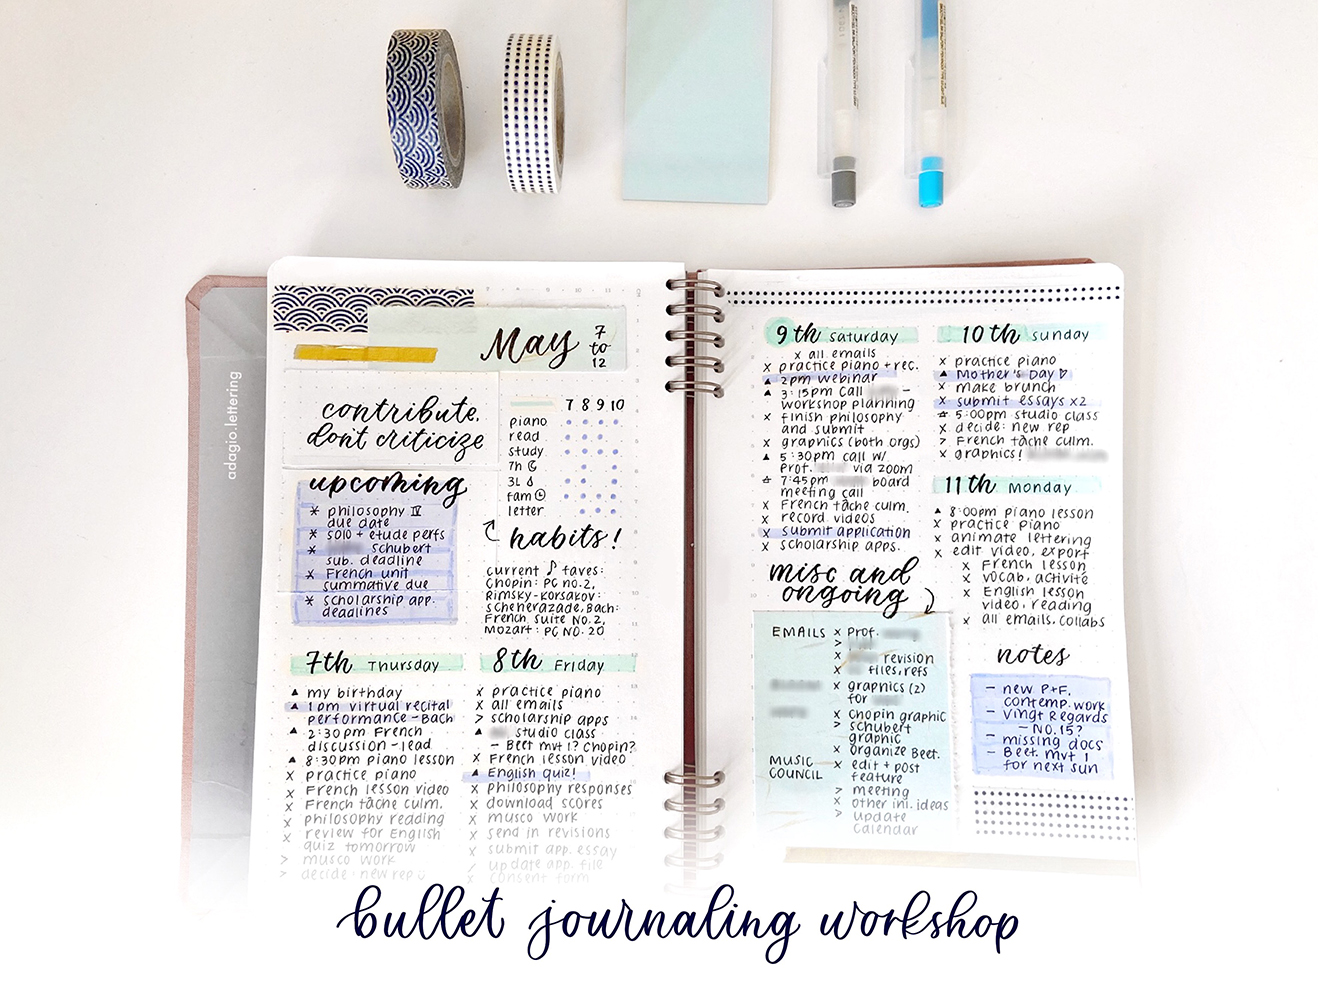 adagio.lettering
May 7
to
12
contribute,
don't criticize
7 8 9 10
piano
read
study
7h
3L
fam
letter
habits!
upcoming
* philosophy IV
due date
* solo + etude perfs
* schubert
sub. deadline
* French unit
summative due
* scholarship app.
deadlines
current ♪ faves:
Chopin: PC no.2,
Rimsky-Korsakov:
Scheherazade, Bach:
French Suite No.2,
Mozart: PC NO. 20
7th Thursday
▲ my birthday
▲ 1pm virtual recital
performance - Bach
▲ 2:30pm French
discussion - lead
▲ 8:30pm piano lesson
x practice piano
x French lesson video
x French tâche culm.
x philosophy reading
x review for English
quiz tomorrow
> musco work
> decide: new rep
8th Friday
x practice piano
x all emails
> scholarship apps
▲ studio class
- Beet mvt 1? Chopin?
x French lesson video
▲ English quiz!
x philosophy responses
x download scores
x musco work
x send in revisions
x submit app. essay
/ update app. file
consent form
9th Saturday
x all emails
x practice piano + rec.
▲ 2pm webinar
▲ 3:15pm call -
workshop planning
x finish philosophy
and submit
x graphics (both orgs)
▲ 5:30pm call w/
Prof. via zoom
☆ 7:45pm board
meeting call
x French tâche culm.
x record videos
x submit application
x scholarship apps.
misc and
ongoing
EMAILS x Prof.
>
x revision
x files, refs
x graphics (2)
for
x Chopin graphic
> Schubert
graphic
x organize Beet.
MUSIC
COUNCIL x edit + post
feature
> meeting
x other ini. ideas
> update
calendar
10th Sunday
x practice piano
▲ Mother's Day ♡
x make brunch
x submit essays x2
☆ 5:00pm studio class
x decide: new rep
> French tâche culm.
x graphics!
11th Monday
▲ 8:00pm piano lesson
x practice piano
x animate lettering
x edit video, export
x French lesson
x vocab, activité
x English lesson
video, reading
x all emails, collabs
notes
- new P+F.
contemp. work
- Vingt Regards
- NO.15?
- missing docs
- Beet. mvt 1
for next sun
bullet journaling workshop